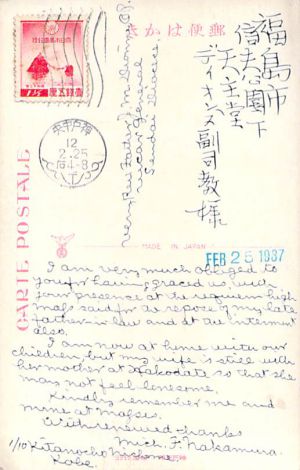 きかは便郵
福島市
信夫公園下
天主堂
ディオンヌ副司教様
Very Rev. Father
Vicar General
Sendai Diocese
12
2.25
CARTE POSTALE
MADE IN JAPAN
FEB 25 1937
I am very much obliged to
you for having graced us with
your presence at the requiem high
mass said for the repose of my late
father-in-law and at the interment
also.
I am now at home with our
children, but my wife is still with
her mother at Hakodate so that she
may not feel lonesome.
Kindly remember me and
mine at Masses.
With renewed thanks
Mich. F. Nakamura.
1/10 Kitanocho
Kobe.